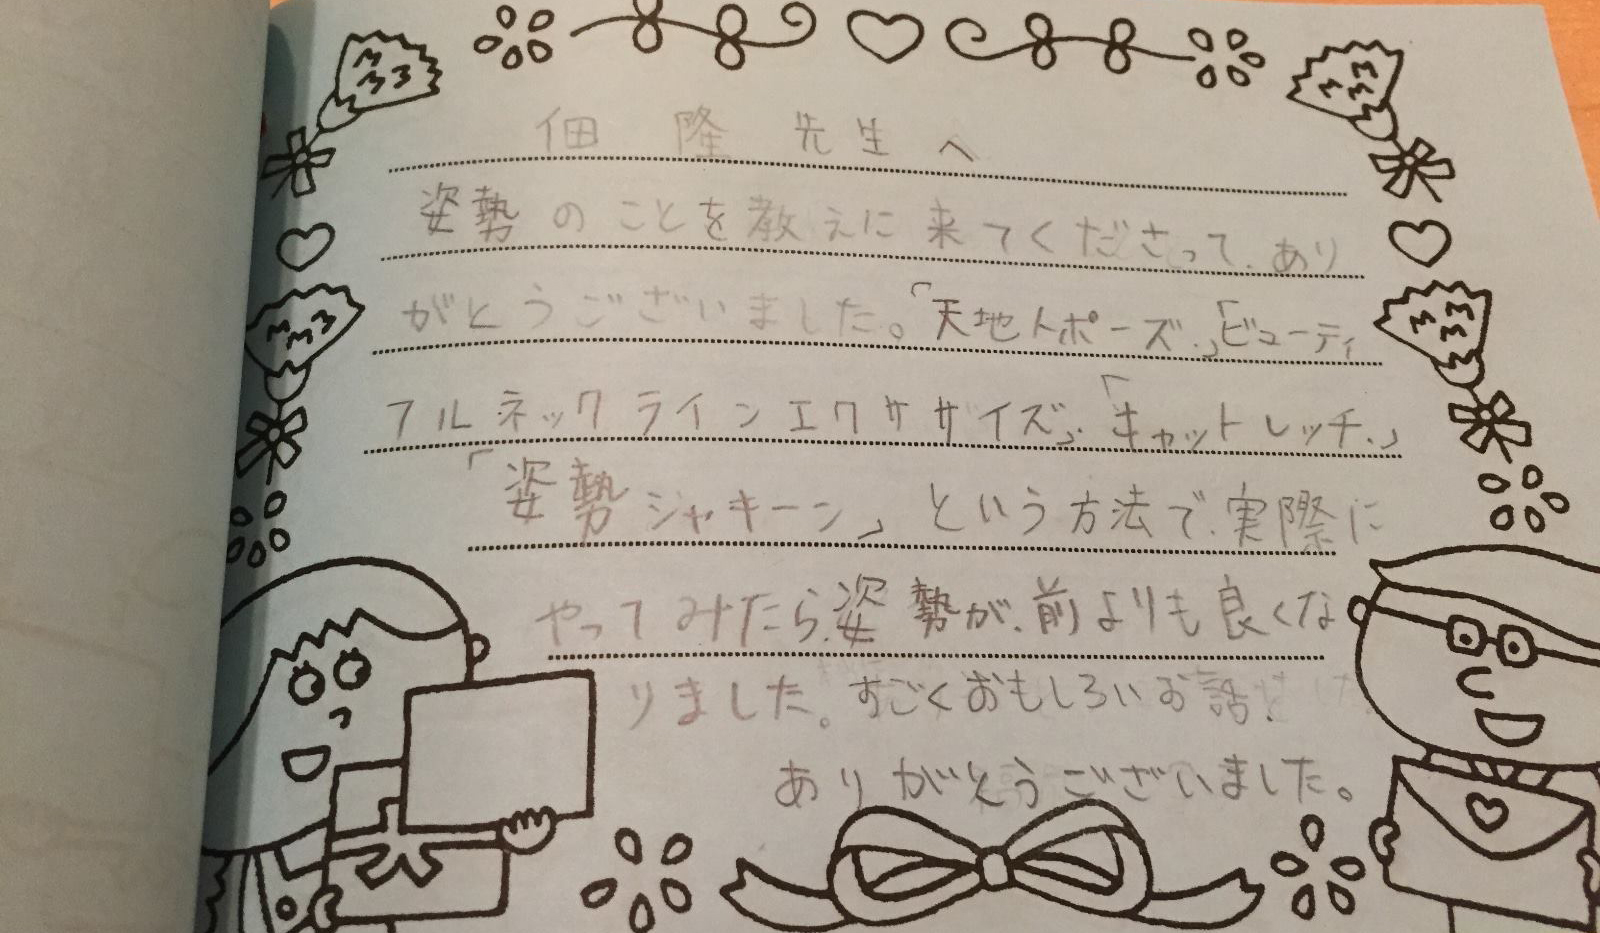 佃 隆 先生へ
姿勢のことを教えに来てくださって、あり
がとうございました。「天地人ポーズ、」「ビューティ
フルネックラインエクササイズ」、「キャットレッチ、」
「姿勢シャキーン」という方法で、実際に
やってみたら、姿勢が、前よりも良くな
りました。すごくおもしろいお話、
ありがとうございました。